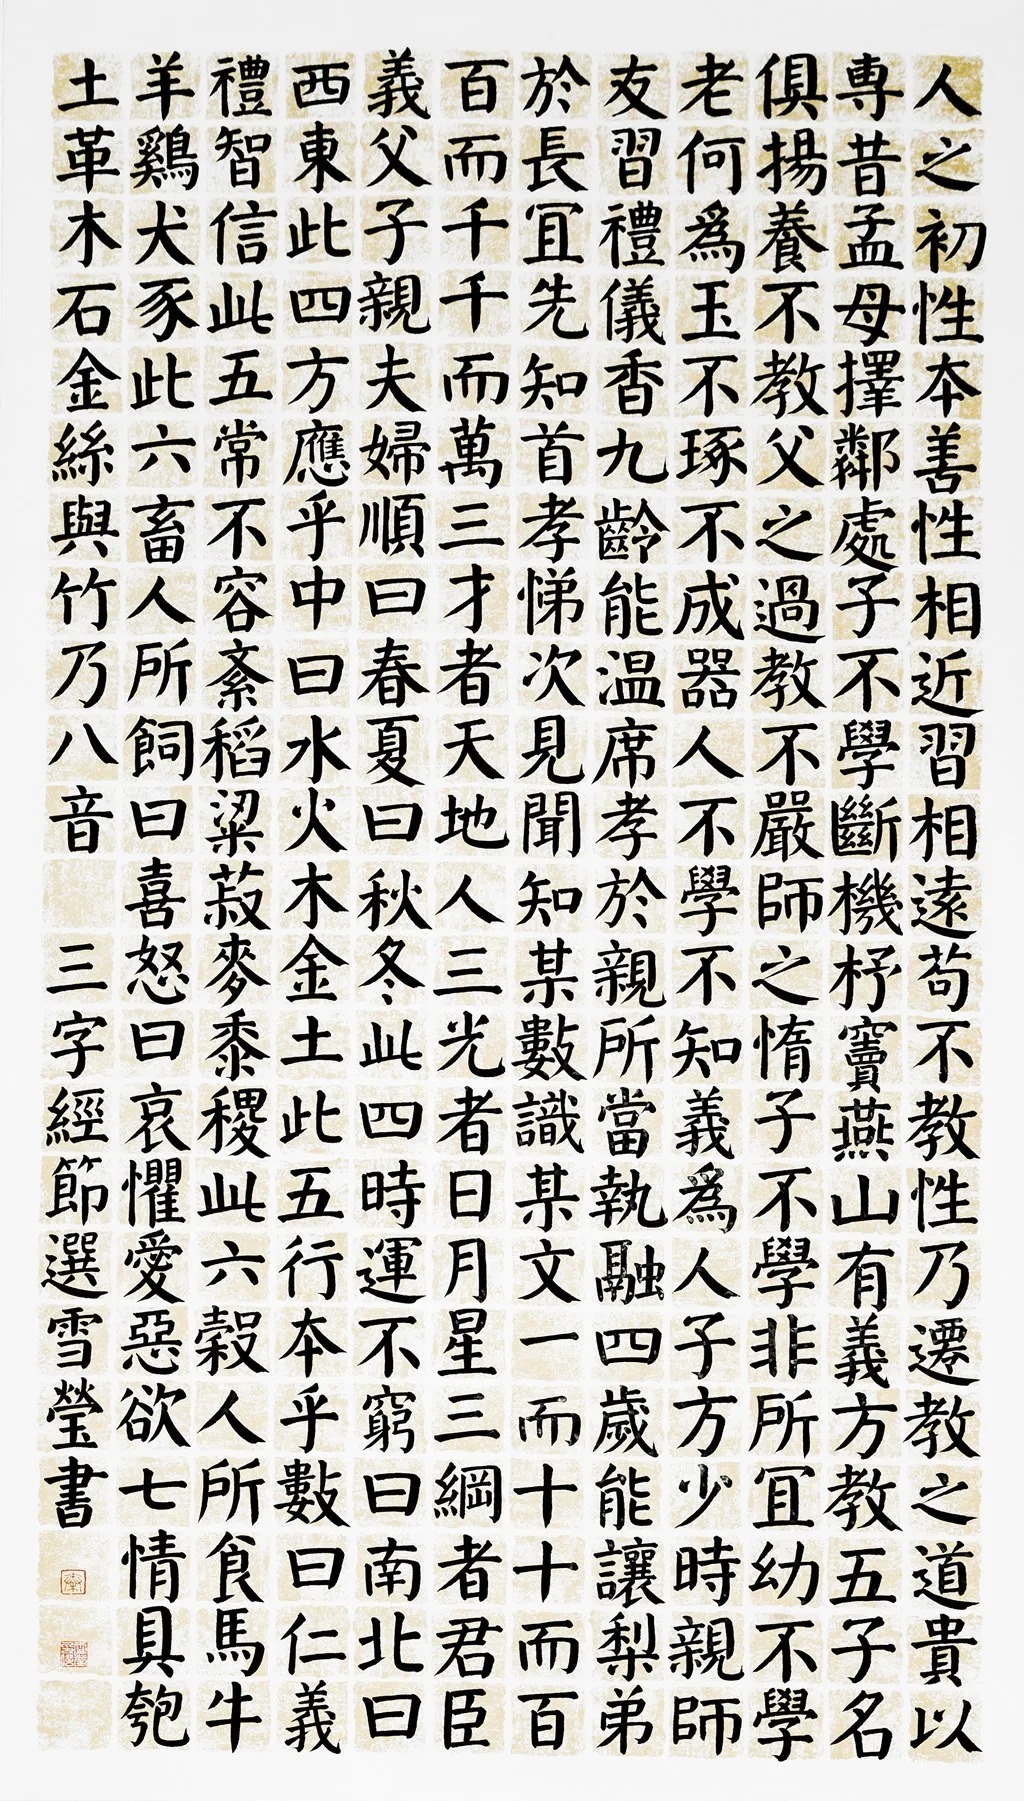 人之初性本善性相近習相遠苟不教性乃遷教之道貴以
專昔孟母擇鄰處子不學斷機杼竇燕山有義方教五子名
俱揚養不教父之過教不嚴師之惰子不學非所宜幼不學
老何爲玉不琢不成器人不學不知義爲人子方少時親師
友習禮儀香九齡能温席孝於親所當執融四歲能讓梨弟
於長宜先知首孝悌次見聞知某數識某文一而十十而百
百而千千而萬三才者天地人三光者日月星三綱者君臣
義父子親夫婦順曰春夏曰秋冬此四時運不窮曰南北曰
西東此四方應乎中曰水火木金土此五行本乎數曰仁義
禮智信此五常不容紊稻粱菽麥黍稷此六穀人所食馬牛
羊鷄犬豕此六畜人所飼曰喜怒曰哀懼愛惡欲七情具匏
土革木石金絲與竹乃八音 三字經節選雪瑩書